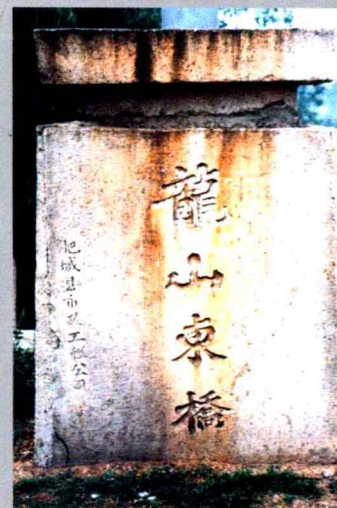 龍山東橋
肥城县市政工程公司